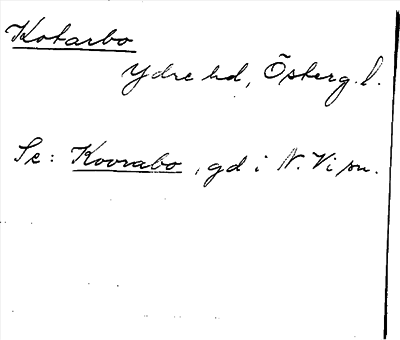 Kotarbo
Ydre hd, Österg. l.
Se: Kovrabo, gd i N. Vi sn.